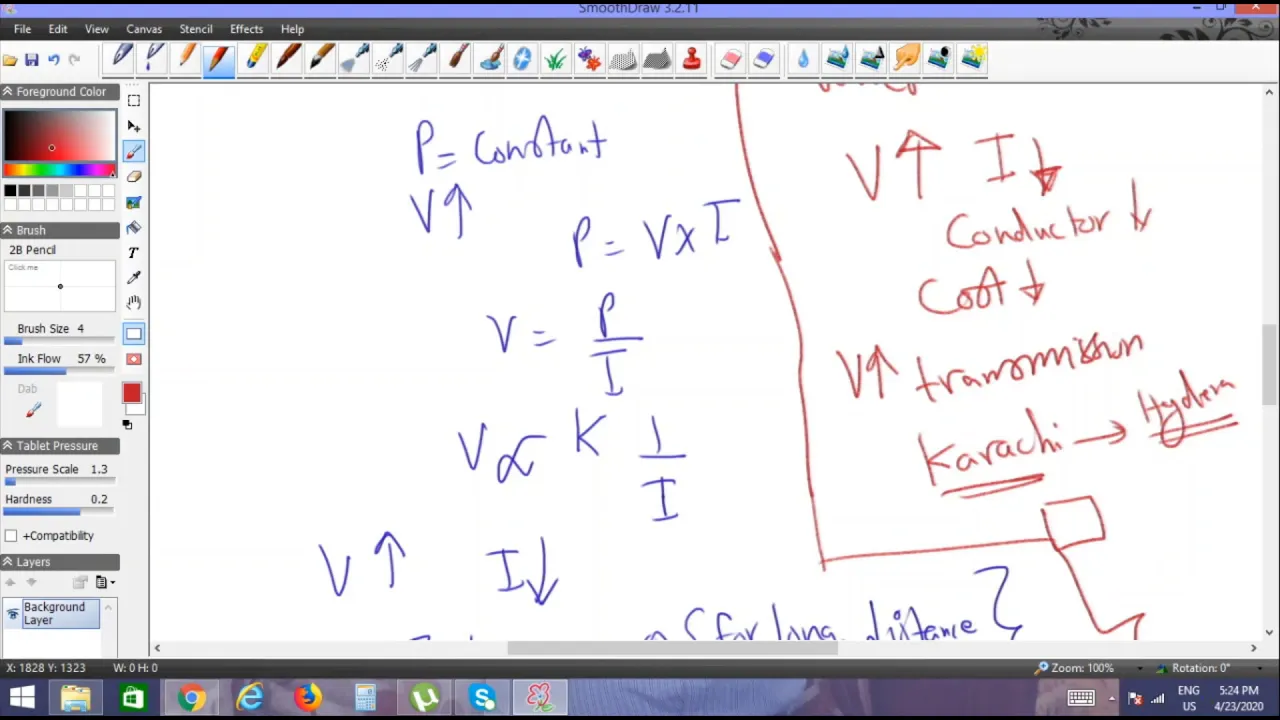 SmoothDraw 3.2.11
File Edit View Canvas Stencil Effects Help
Foreground Color
Brush
2B Pencil
Click me
Brush Size 4
Ink Flow 57 %
Dab
Tablet Pressure
Pressure Scale 1.3
Hardness 0.2
+Compatibility
Layers
Background
Layer
P = Constant
V↑
P = V x I
V = P/I
V ∝ K 1/I
V ↑ I ↓
for long distance
V↑ I↓
Conductor ↓
Cost ↓
V↑ transmission
Karachi → Hydera
X: 1828 Y: 1323 W: 0 H: 0
Zoom: 100% Rotation: 0°
ENG 5:24 PM
US 4/23/2020